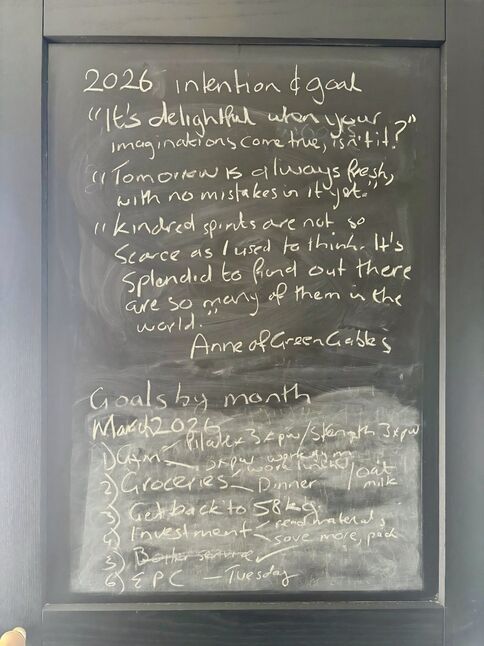 2026 intention & goal
"It's delightful when your
imaginations come true, isn't it?"
"Tomorrow is always fresh,
with no mistakes in it yet."
"Kindred spirits are not so
scarce as I used to think. It's
splendid to find out there
are so many of them in the
world."
Anne of Green Gables
Goals by month
March 2026
1) Gym - Pilates 3xpw/strength 3xpw
3xpw work gym
2) Groceries - Dinner / oat milk
3) Get back to 58kg.
4) Investment < read materials
save more,
5) Boiler service ✓
6) EPC - Tuesday